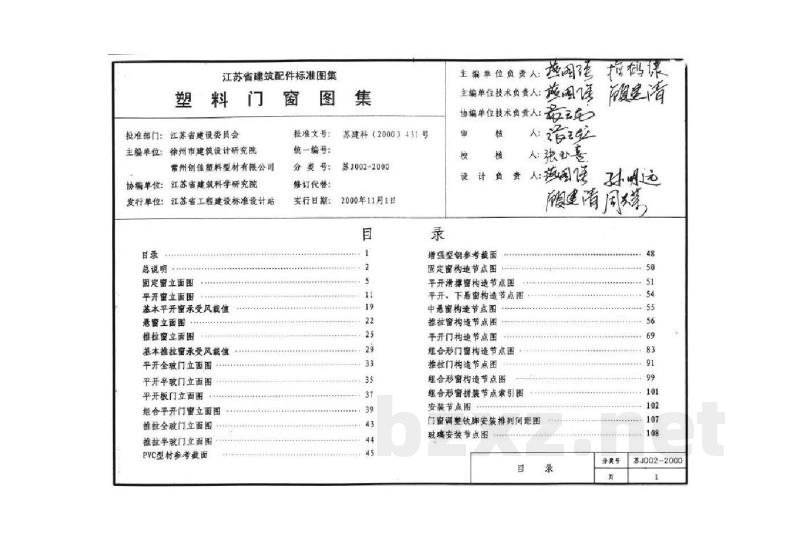 江苏省建筑配件标准图集
塑料门窗图集
批准部门: 江苏省建设委员会 批准文号: 苏建科(2000)431号
主编单位: 徐州市建筑设计研究院 统一编号:
常州创佳塑料型材有限公司 分类号: 苏J002-2000
协编单位: 江苏省建筑科学研究院 修订代替:
发行单位: 江苏省工程建设标准设计站 实行日期: 2000年11月1日
主编单位负责人:
主编单位技术负责人:
协编单位技术负责人:
审核人:
校核人:
设计负责人:
目 录
目录 1
总说明 2
固定窗立面图 5
平开窗立面图 11
基本平开窗承受风载值 19
悬窗立面图 22
推拉窗立面图 25
基本推拉窗承受风载值 29
平开全玻门立面图 33
平开半玻门立面图 35
平开板门立面图 37
组合平开门窗立面图 39
推拉全玻门立面图 43
推拉半玻门立面图 44
PVC型材参考截面 45
增强型钢参考截面 48
固定窗构造节点图 50
平开滑撑窗构造节点图 51
平开、下悬窗构造节点图 54
中悬窗构造节点图 55
推拉窗构造节点图 56
平开门构造节点图 69
组合形门窗构造节点图 83
推拉门构造节点图 91
组合形窗构造节点图 99
组合形窗拼装节点索引图 101
安装节点图 102
门窗调整铁脚安装排列间距图 107
玻璃安装节点图 108
bzxz.net
目 录
分类号 苏J002-2000
页 1